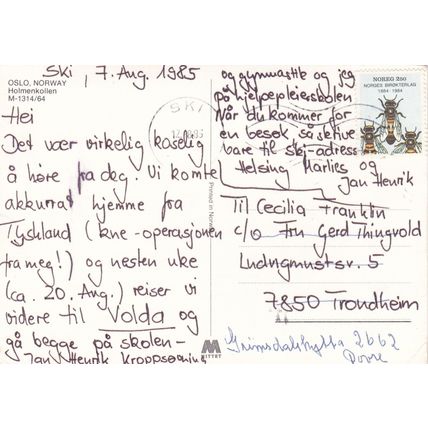 OSLO, NORWAY
Holmenkollen
M-1314/64
Ski, 7. Aug. 1985
Hei
Det var virkelig koselig
å høre fra deg. Vi komte
akkurat hjemme fra
Tyskland (kne-operasjonen
fra meg!) og nesten uke
(ca. 20. Aug.) reiser vi
videre til Volda og
gå begge på skolen-
Jan Henrik Kroppsøving
og gymnastikk og jeg
på hjelpepleierskolen
Når du kommer for
en besøk, så skrive
bare til ski-adress
Helsing Marlies og
Jan Henrik
SKI
NOREG 250
NORGES BIRØKTERLAG
1884-1984
Printed in Norway
Til Cecilia Franklin
c/o Fru Gerd Thingvold
Ludvigmustsv. 5
7850 Trondheim
2662
Dovre
MITTET